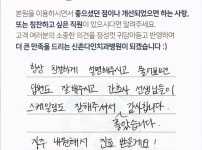 본원을 이용하시면서 좋으셨던 점이나 개선되었으면 하는 사항,
또는 칭찬하고 싶은 직원이 있으시다면 알려주세요.
고객 여러분의 소중한 의견을 정성껏 귀담아듣고 반영하여
더 큰 만족을 드리는 신촌다인치과병원이 되겠습니다 :)
항상 친절하게 설명해주시고 물어보면
답변도 잘해주시고 간호사 선생님들이
스케일링도 잘해주셔서 감사합니다.
좋았습니다
자주 내원해서 진료 받을게요!